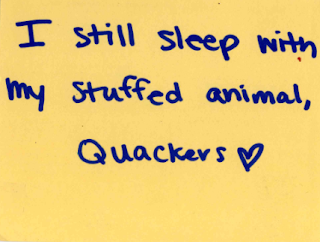 I still sleep with
my stuffed animal,
Quackers ♡